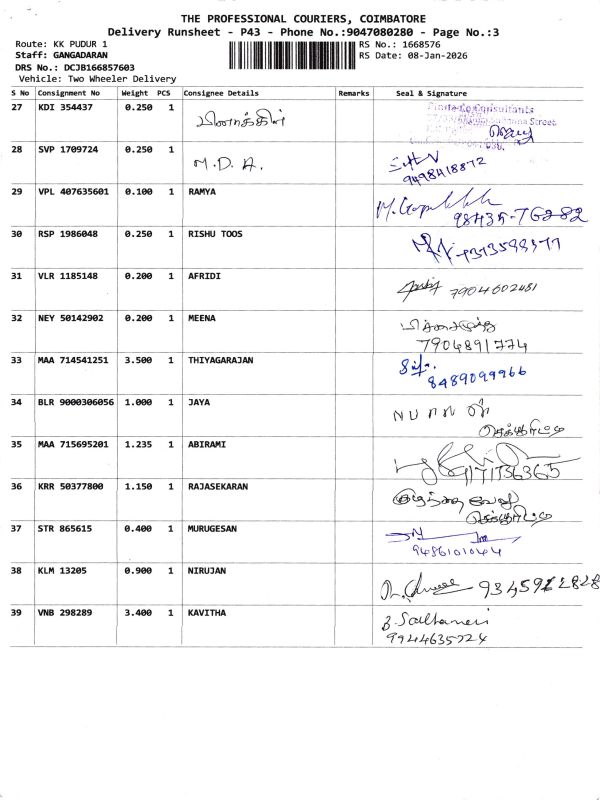 THE PROFESSIONAL COURIERS, COIMBATORE
Delivery Runsheet - P43 - Phone No.:9047080280 - Page No.:3
Route: KK PUDUR 1 RS No.: 1668576
Staff: GANGADARAN RS Date: 08-Jan-2026
DRS No.: DCJB166857603
Vehicle: Two Wheeler Delivery
S No Consignment No Weight PCS Consignee Details Remarks Seal & Signature
27 KDI 354437 0.250 1
28 SVP 1709724 0.250 1 M.D.A.
9498418872
29 VPL 407635601 0.100 1 RAMYA
98435-76282
30 RSP 1986048 0.250 1 RISHU TOOS
31 VLR 1185148 0.200 1 AFRIDI 7904602481
32 NEY 50142902 0.200 1 MEENA
7904891774
33 MAA 714541251 3.500 1 THIYAGARAJAN
8489099966
34 BLR 9000306056 1.000 1 JAYA
செக்யூரிட்டி
35 MAA 715695201 1.235 1 ABIRAMI
36 KRR 50377800 1.150 1 RAJASEKARAN குழந்தை வேலு
செக்யூரிட்டி
37 STR 865615 0.400 1 MURUGESAN
9486101044
38 KLM 13205 0.900 1 NIRUJAN
39 VNB 298289 3.400 1 KAVITHA
9944635724